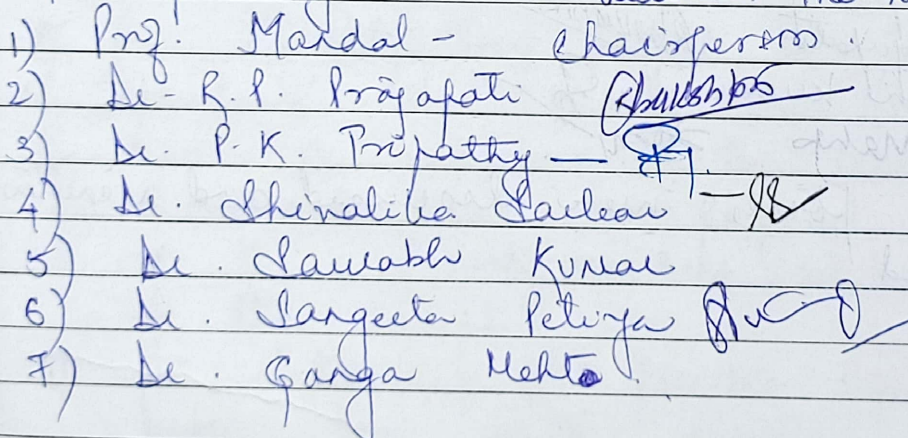 1) Prof. Mandal - Chairperson.
2) Dr. R. P. Prajapati
3) Dr. P. K. Tripathy —
4) Dr. Shivalika Sarkar -
5) Dr. Saurabh Kumar
6) Dr. Sangeeta Petiya
7) Dr. Ganga Mehto.